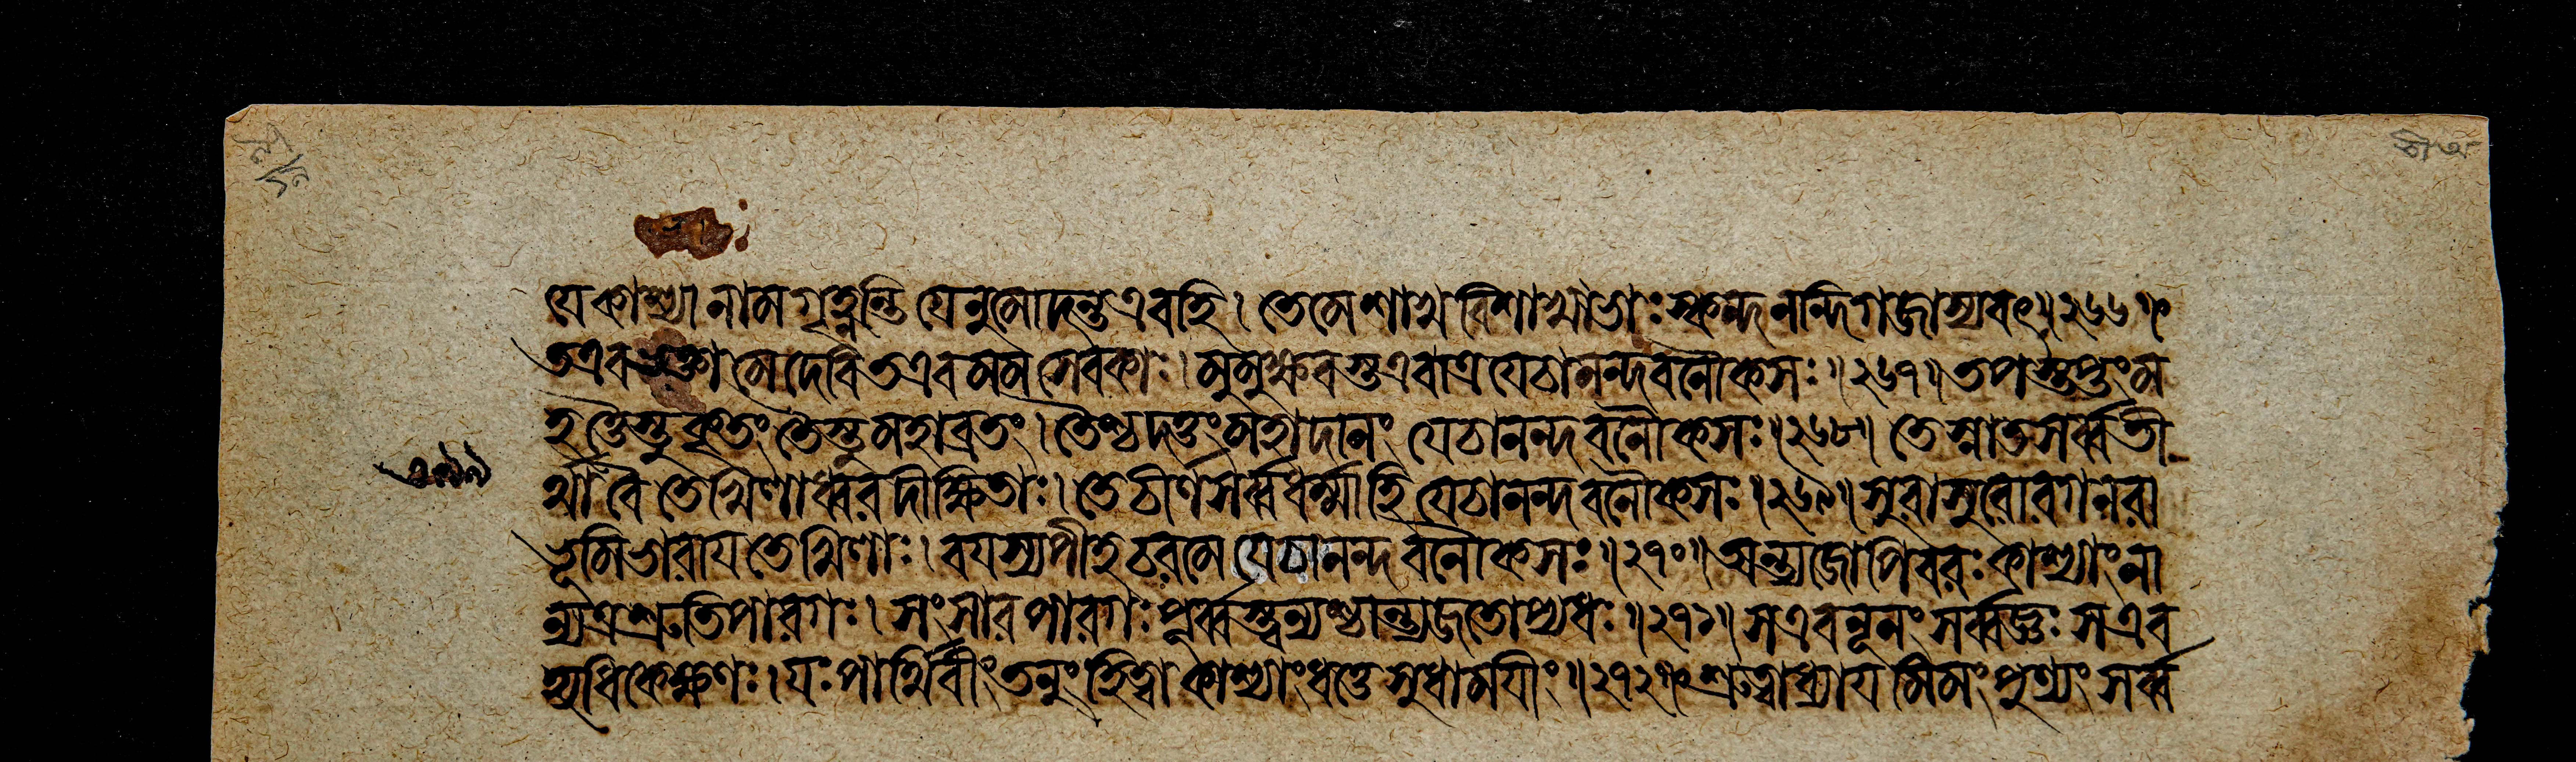 যেকাশ্যা নাম গৃহ্ণন্তি যেনুমোদন্তএবহি। তেমেশাখ বিশাখাভাঃ স্কন্দ নন্দি গজাস্যবৎ॥২৬৬॥
তএব ভক্তা মে দেবি তএব মম সেবকাঃ। মুমুক্ষবস্তএবাত্র যেঠানন্দবনৌকসঃ॥২৬৭॥ তপস্তপ্তংম
হত্তৈস্তু কৃতং তৈস্তু মহাব্রতং। তৈশ্চদত্তং মহাদানং যেঠানন্দবনৌকসঃ॥২৬৮॥ তে স্নাত সর্ব্বতী
র্থা বৈ তেখিলাধ্বর দীক্ষিতাঃ। তে ঠীর্ণসর্ব্ব ধর্ম্মা হি যেঠানন্দবনৌকসঃ॥২৬৯॥ সুরাসুরোরগনরা
ভূমিভারায় তেখিলাঃ। বযস্যপীহ ঠরমে যেঠানন্দবনৌকসঃ॥২৭০॥ অন্ত্যজোপিবরঃ কাশ্যাং না
ন্যত্র শ্রুতিপারগঃ। সংসার পারগঃ পূর্ব্বস্ত্বন্যশ্চান্ত্যজতোপ্যধঃ॥২৭১॥ সএব নূনং সর্ব্বজ্ঞঃ সএব
ত্যধিকেক্ষণঃ। যঃ পার্থিবীং তনুং হিত্বা কাশ্যাং ধত্তে সুধাময়ীং॥২৭২॥ শ্রুত্বাধ্যায় মিমং পুণ্যং সর্ব্ব